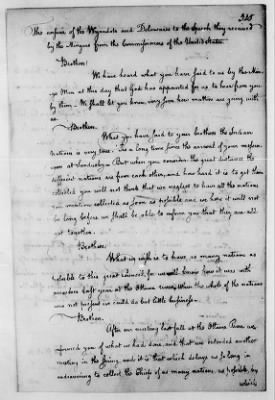 325
The answer of the Wyandots and Delawares to the Speech they received
by the Mingoes from the Commissioners of the United States.
Brothers!
We have heard what you have said to us by the
Men at this day that God has appointed for us to hear from you
by them. We shall let you know, very soon how matters are going with
us.
Brothers,
What you have said to your brothers the Indian
Nations is very true. Tis a long time since the arrival of your
at Sandusky. But when you consider the great distance the
different nations are from each other, and how hard it is to get them
collected you will not think that we neglect to have all the nations
our meeting collected as soon as possible and we hope it will not
be long before we shall be able to inform you that they are all
got together.
Brothers,
What us is to have as many nations as
possible to this great Council, for we well know how it was with
ourselves last year at the Ottawa when the whole of the nations
were not present we could do but little business.
Brothers,
After our meeting last fall at the Ottawa River we
informed you of what we had done, and that we intended another
meeting in the Spring, and it is that which delays us so long in
endeavouring to collect the Chiefs of as many nations as possible, by
which